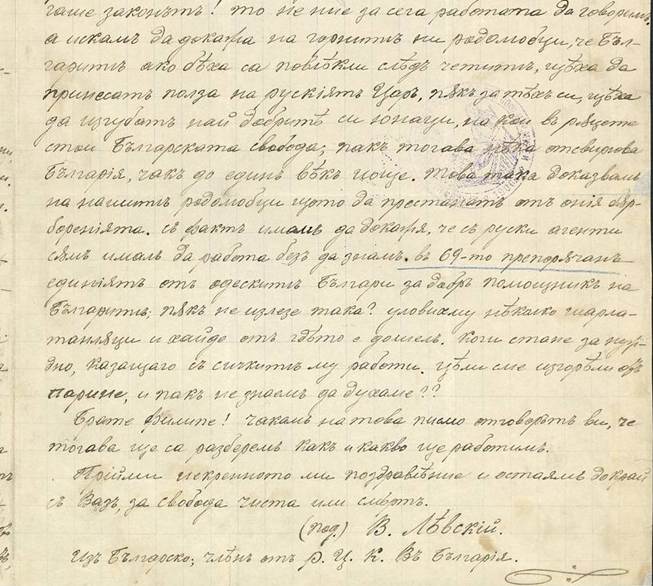 гаше законътъ! то не ние за сега работата да говоримъ,
а искамъ да докажа на горнитѣ ни родомобци, че Бъл-
гаритѣ ако бѣха са повлѣкли слѣдъ четитѣ, щѣха да
принесатъ полза на рускиятъ Царь, пякъ за тѣхъ си, щѣха
да изгубятъ най добритѣ си юнаци, на кои въ ряцете
стои Българската свобода; пакъ тогава нѣка отсвирюва
България, чакъ до единъ вѣкъ йоще. това така доказвамъ
на нашитѣ родомобци щото да престанатъ отъ ония
боренията. съ фактъ имамъ да докажя, че съ руски агенти
съмъ ималъ да работа безъ да знамъ. въ 69-то препорячанъ
единиятъ отъ одескитѣ Българи за добръ помощникъ на
Българитѣ; пякъ не излезе така? уловихму нѣколко шарла-
танляци и хайде отъ гдѣто е дошелъ. Коги стане за ну-
дно, казащаго съ сичкитѣ му работи. цѣли сме изгорѣли отъ
парине, и пакъ не знаемъ да духаме??
Брате Филипе! чакамъ на това писмо отговорътъ ви, че
тогава ще са разберемъ какъ и какво ще работимъ.
Прийми искренното ми поздравѣние и оставямъ докрай
съ Вазъ, за свобода чиста или смърть.
(под.) В. Лѣвскій.
Изъ Българско; члѣнъ отъ Р. Ц. К. въ България.